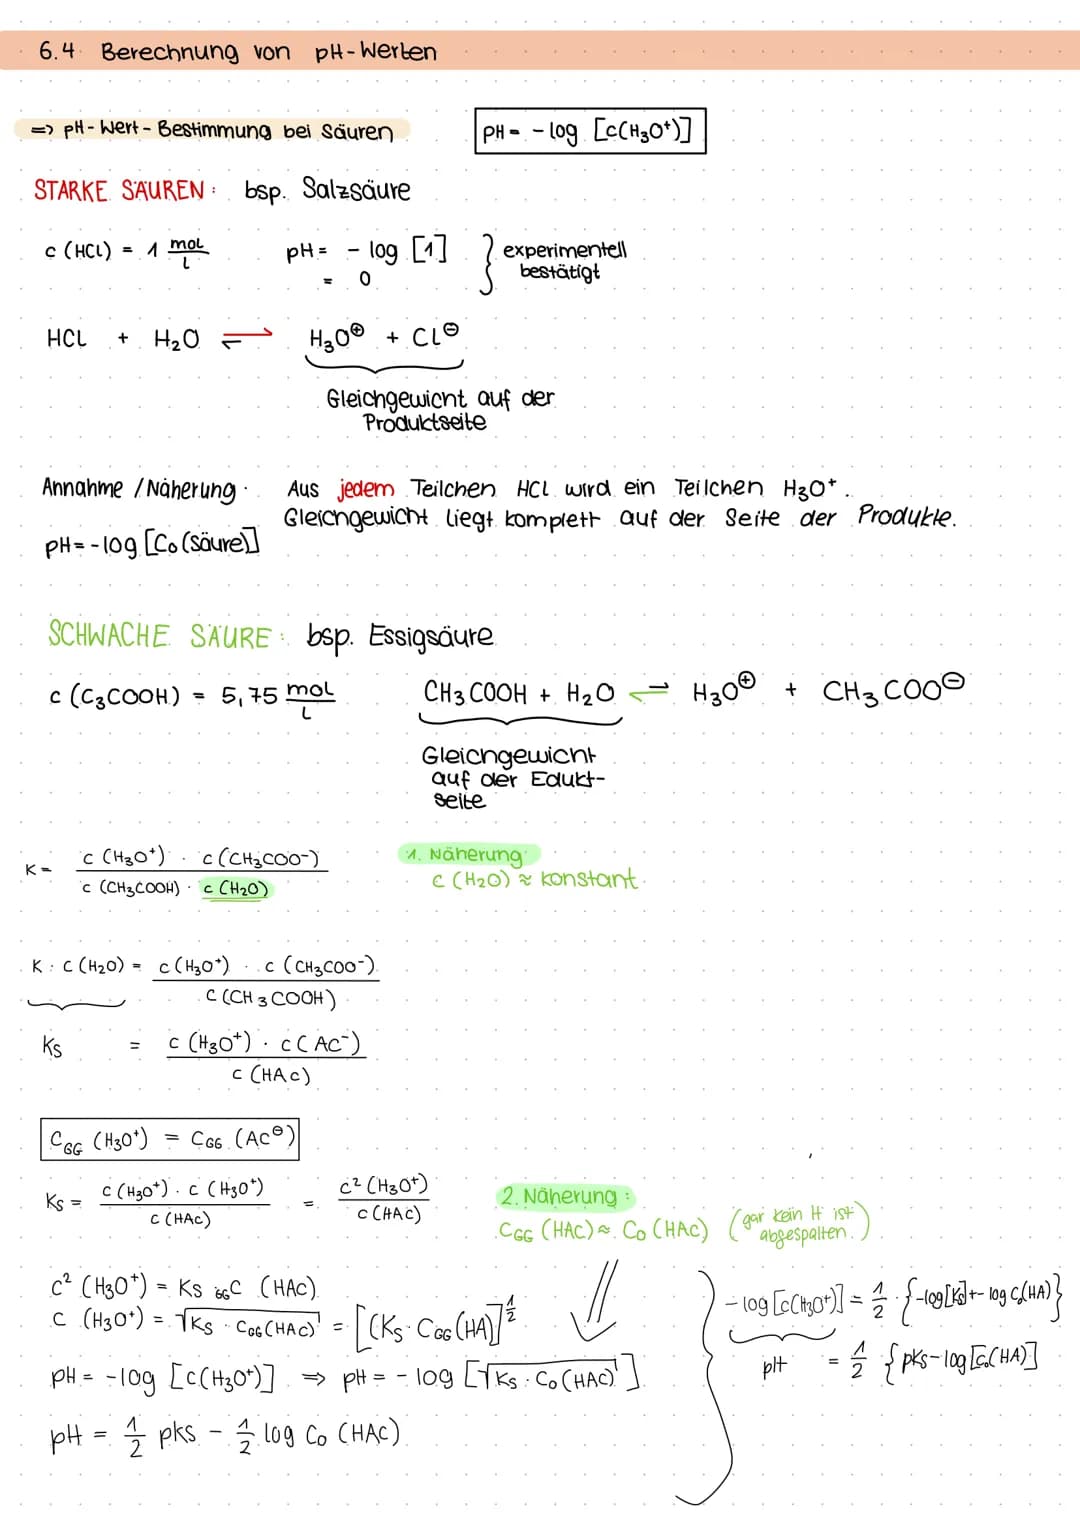 6.4 Berechnung von pH-Werten
=> pH-Wert-Bestimmung bei Säuren
pH = - log [c(H₃O⁺)]
STARKE SÄUREN: bsp. Salzsäure
c (HCl) = 1 mol/l
pH = - log [1]
= 0
} experimentell bestätigt
HCl + H₂O ⇌ H₃O⊕ + Cl⊖
Gleichgewicht auf der
Produktseite
Annahme / Näherung: Aus jedem Teilchen HCl wird ein Teilchen H₃O⁺.
Gleichgewicht liegt komplett auf der Seite der Produkte.
pH = -log [C₀ (Säure)]
SCHWACHE SÄURE: bsp. Essigsäure
c (C₃COOH) = 5,75 mol/l
CH₃COOH + H₂O ⇌ H₃O⊕ + CH₃COO⊖
Gleichgewicht
auf der Edukt-
seite
K = c (H₃O⁺) · c (CH₃COO⁻) / c (CH₃COOH) · c (H₂O)
1. Näherung
c (H₂O) ≈ konstant
K · c (H₂O) = c (H₃O⁺) · c (CH₃COO⁻) / c (CH₃COOH)
Ks = c (H₃O⁺) · c (AC⁻) / c (HAc)
C_GG (H₃O⁺) = C_GG (AC⊖)
Ks = c (H₃O⁺) · c (H₃O⁺) / c (HAC) = c² (H₃O⁺) / c (HAC)
2. Näherung:
C_GG (HAC) ≈ C₀ (HAC) (gar kein H ist abgespalten.)
c² (H₃O⁺) = Ks · _GG C (HAC)
c (H₃O⁺) = √Ks · C_GG (HAC) = [(Ks · C_GG (HA)]^½
pH = -log [c(H₃O⁺)] ⇒ pH = - log [√Ks · C₀ (HAC)]
pH = ½ pks - ½ log C₀ (HAC)
- log [c(H₃O⁺)] = ½ · {-log [Ks] + - log C₀(HA)}
pH = ½ {pKs - log [C₀(HA)]